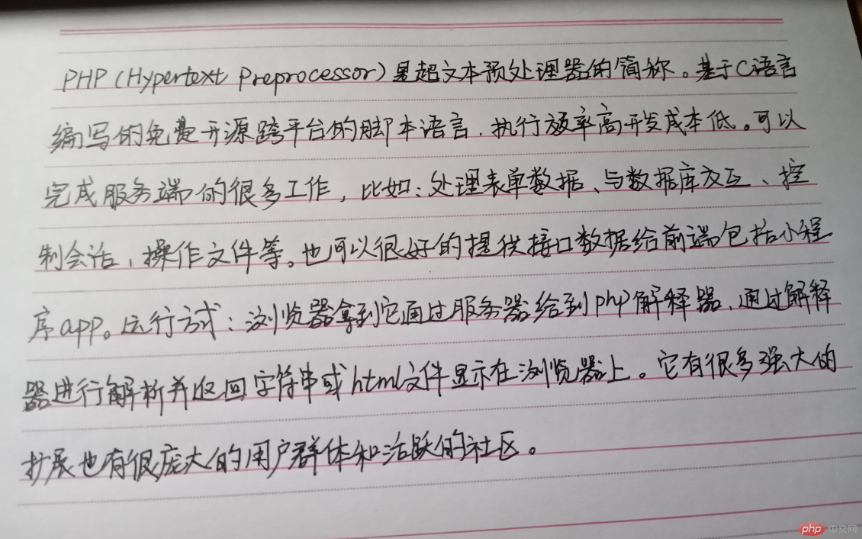 PHP(Hypertext Preprocessor)是超文本预处理器的简称。基于C语言
编写的免费开源跨平台的脚本语言,执行效率高开发成本低。可以
完成服务端的很多工作,比如:处理表单数据、与数据库交互、控
制会话,操作文件等。也可以很好的提供接口数据给前端包括小程
序app。运行方式:浏览器拿到它通过服务器给到php解释器,通过解释
器进行解析并返回字符串或html文件显示在浏览器上。它有很多强大的
扩展也有很庞大的用户群体和活跃的社区。
php 中文网